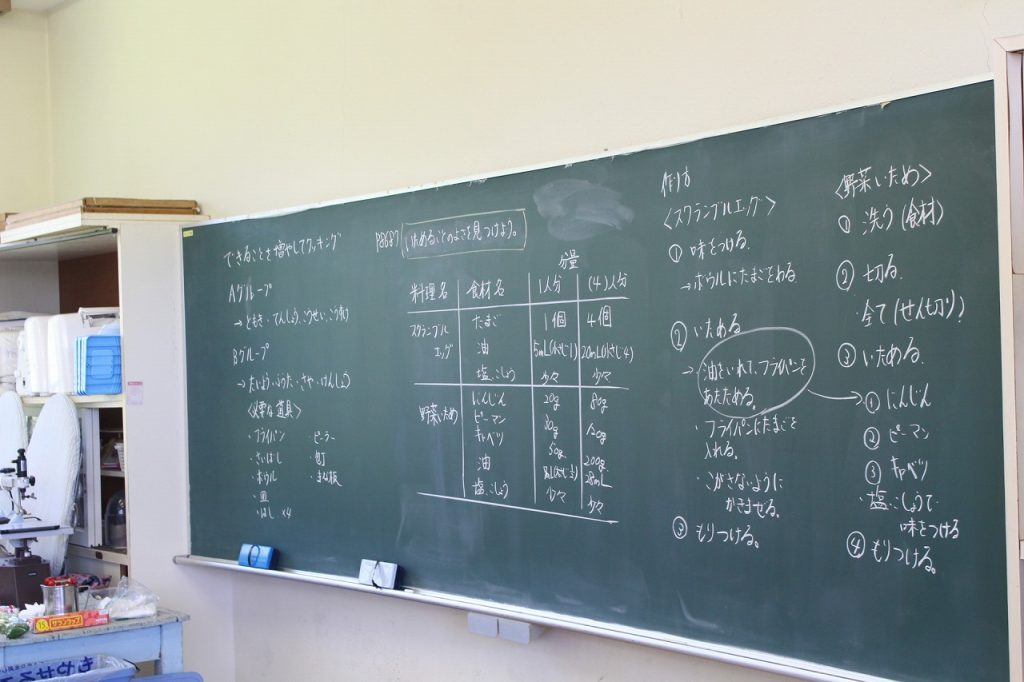 できることを増やしてクッキング
Aグループ
→ ともき・てんしょう・こうせい・こう
Bグループ
→ たいよう・そうた・さや・けんしょう
〈必要な道具〉
・フライパン ・ピーラー
・さいばし ・包丁
・ボウル ・まな板
・皿
・はし ×4
P86 87 いためることのよさを見つけよう。
分量
料理名 食材名 1人分 (4)人分
スクランブルエッグ たまご 1個 4個
油 5mL(小さじ1) 20mL(小さじ4)
塩、こしょう 少々 少々
野菜いため にんじん 20g 80g
ピーマン 30g 120g
キャベツ 50g 200g
油 28mL
塩、こしょう 少々 少々
作り方
〈スクランブルエッグ〉
① 味をつける。
→ボウルにたまごをわる
② いためる
→ 油をいれて、フライパンを
あたためる。
・フライパンにたまごを
入れる。
・こがさないように
かきまぜる。
③ もりつける。
〈野菜いため〉
① 洗う(食材)
② 切る。
・全て(せん切り)
③ いためる。
① にんじん
② ピーマン
③ キャベツ
・塩、こしょうで
味をつける
④ もりつける。
もやせる